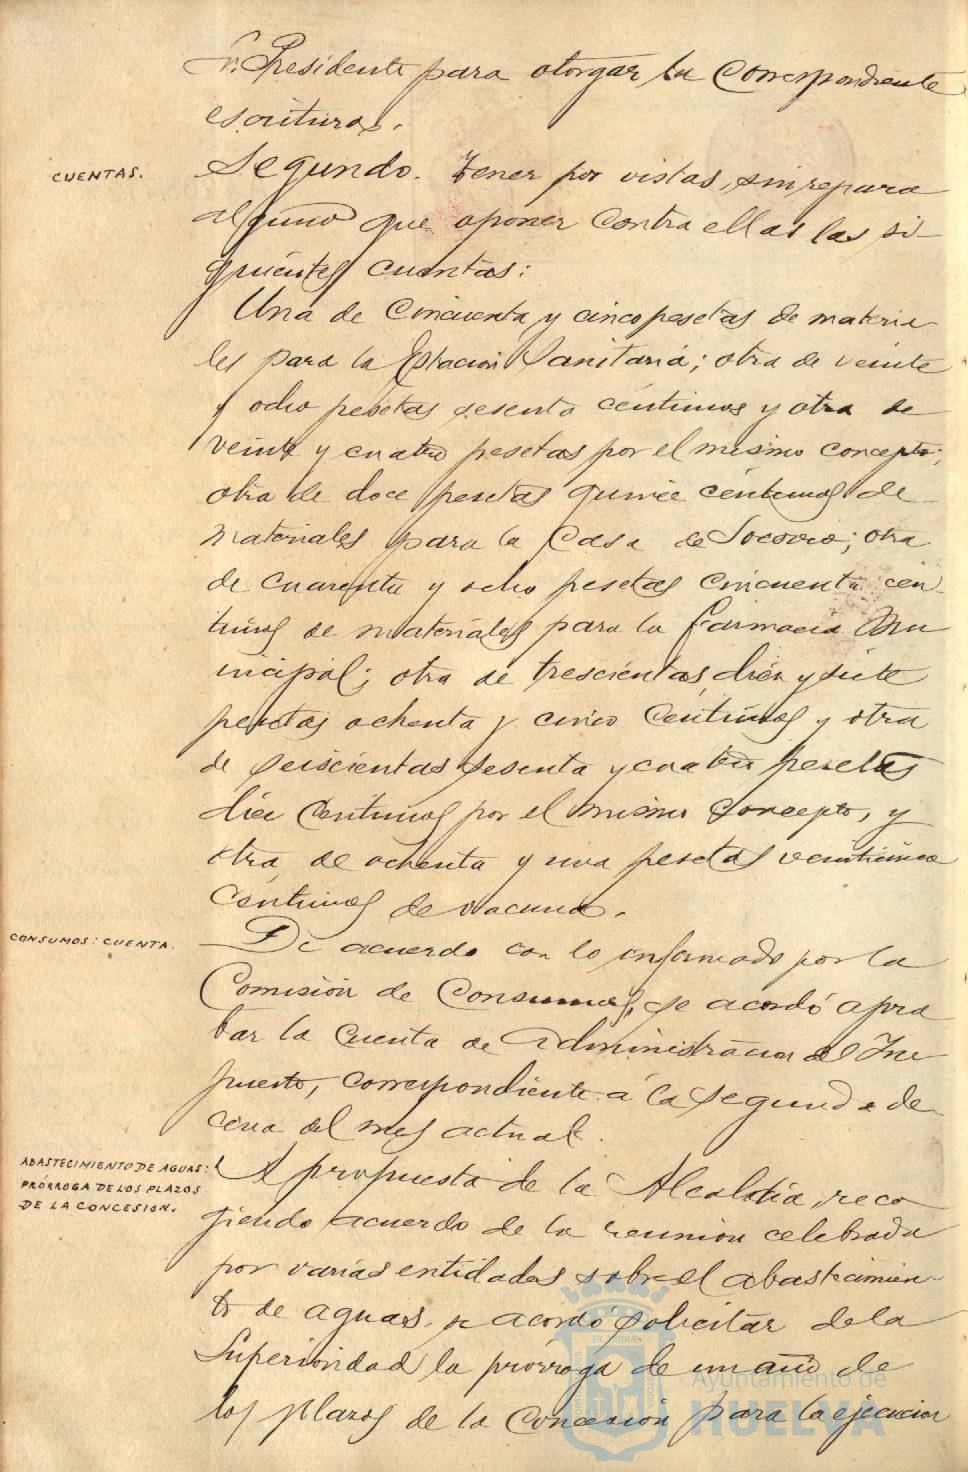 Sr. Presidente para otorgar la correspondiente
escritura.
CUENTAS.
Segundo. Tener por vistas, sin reparo
alguno que oponer contra ellas las si-
guientes cuentas:
Una de cincuenta y cinco pesetas de materia
les para la Estacion Sanitaria; otra de veinte
y ocho pesetas sesenta centimos y otra de
veinte y cuatro pesetas por el mismo concepto;
otra de doce pesetas quince centimos de
materiales para la Casa de Socorro; otra
de cuarenta y ocho pesetas cincuenta cen
timos de materiales para la farmacia Mu
nicipal; otra de trescientas diez y siete
pesetas ochenta y cinco centimos y otra
de seiscientas sesenta y cuatro pesetas
diez centimos por el mismo concepto, y
otra de ochenta y una pesetas veinticinco
centimos de vacuna.
CONSUMOS: CUENTA.
De acuerdo con lo informado por la
Comisión de Consumos, se acordó apro
bar la cuenta de Administracion del Im
puesto, correspondiente á la segunda de-
cena del mes actual.
ABASTECIMIENTO DE AGUAS:
PRÓRROGA DE LOS PLAZOS
DE LA CONCESION.
A propuesta de la Alcaldía, reco
giendo acuerdo de la reunion celebrada
por varias entidades sobre el abastecimien-
to de aguas, se acordó solicitar de la
Superioridad la prórroga de un año de
los plazos de la concesión para la ejecucion
Ayuntamiento de
HUELVA